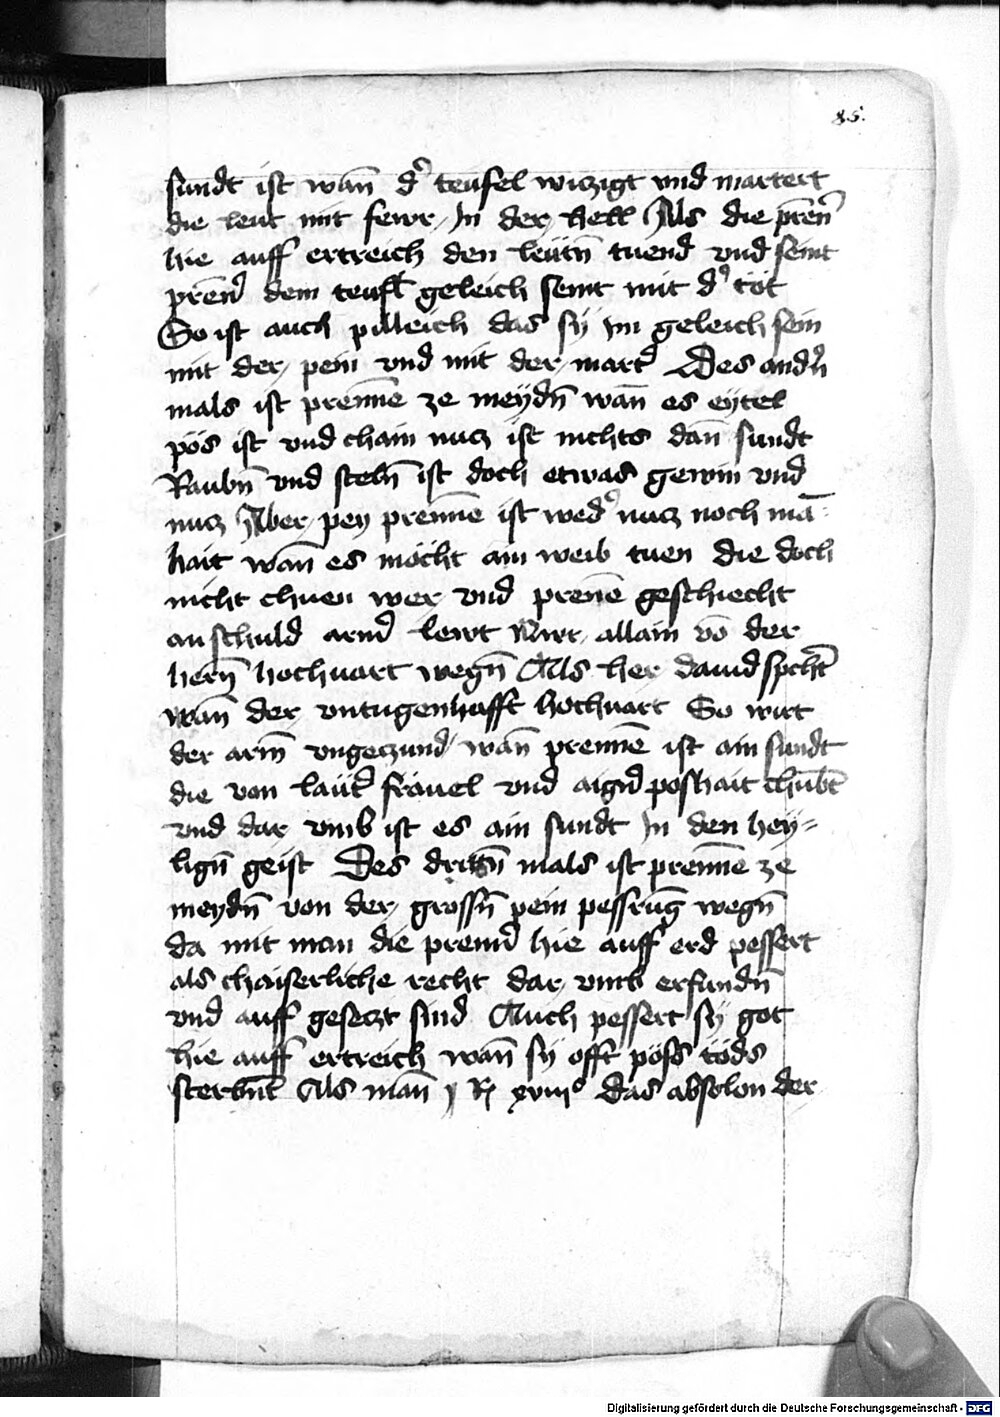 85.
sundt ist wan̄ d' teufel wiczigt vnd martert
die leut mit fewr In der hell Als die pren̄'
hie auff ertreich den leutn̄ tuend vnd seint
pren̄' dem teufl geleich seint mit d' tot
So ist auch pilleich das sy im geleich sein
mit der pein vnd mit der mart' Des andn̄
mals ist prenne ze meydn̄ wan̄ es eytel
pös ist vnd chain nucz ist nichts dan̄ sundt
Raubn̄ vnd steln̄ ist doch etwas gewin vnd
nucz Aber pey prenne ist wed' nucz noch mā
hait wan̄ es möcht ain weib tuen die doch
nicht chuen wer vnd prenne geschiecht
an schuld armer lewt allain vō der
hern̄ hochuart wegn̄ Als her dauid spcht
wan̄ der vntugenhafft hochuart So wirt
der arm̄ vngeczund wan̄ prenne ist ain sundt
die von lautt' fräuel vnd aign' poshait chūbt
vnd dar vmb ist es ain sundt In den hey=
lign̄ geist Des drittn̄ mals ist prenne ze
meydn̄ von der grossn̄ pein pessrūg wegn̄
da mit man die pren̄' hie auff erd pessert
als chaiserliche recht dar vmb erfundn̄
vnd auff geseczt sind Auch pessert sy got
hie auff ertreich wan̄ sy offt pöss töds
sterbnt Als man̄ y R xviii° das absolon der
Digitalisierung gefördert durch die Deutsche Forschungsgemeinschaft - DFG